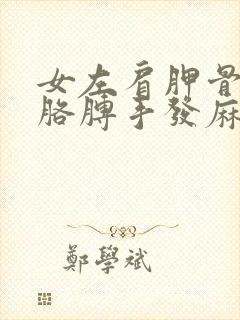 女左肩胛骨
胳膊手發麻
鄭學斌